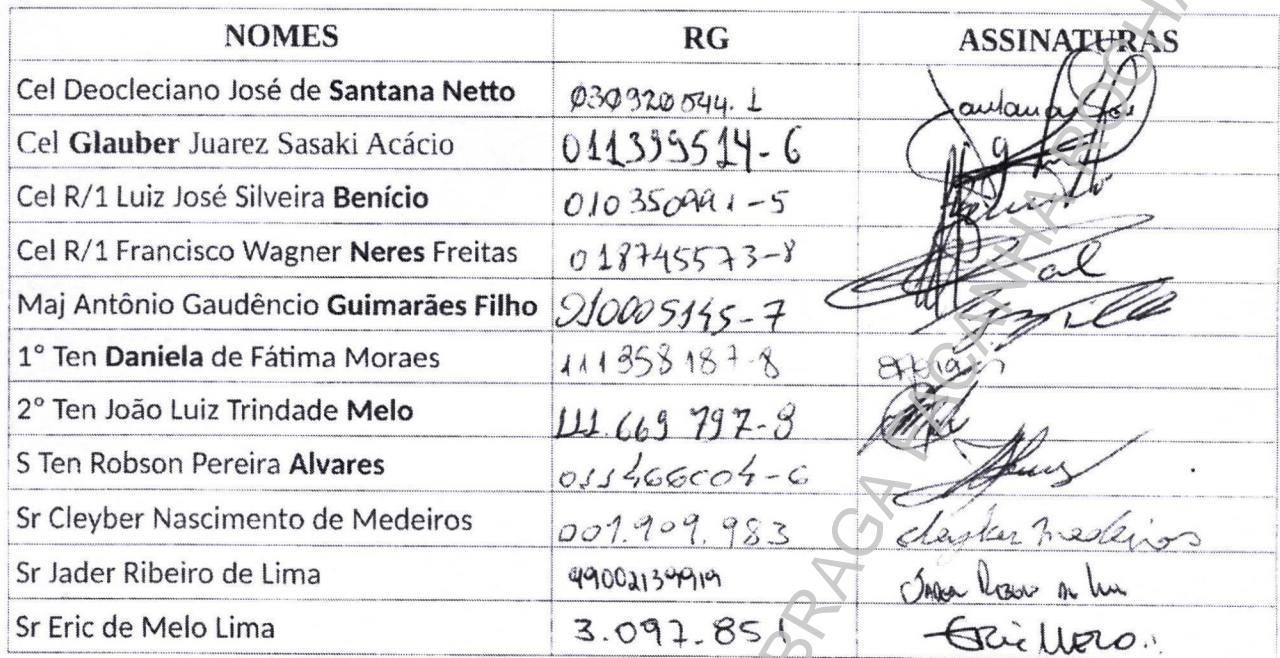 NOMES RG ASSINATURAS
Cel Deocleciano José de Santana Netto 030920544. 1
Cel Glauber Juarez Sasaki Acácio 011399514-6
Cel R/1 Luiz José Silveira Benício
Cel R/1 Francisco Wagner Neres Freitas 018745573-8
Maj Antônio Gaudêncio Guimarães Filho 010005145-7
1º Ten Daniela de Fátima Moraes 111358187-8
2º Ten João Luiz Trindade Melo 111.669 797-8
S Ten Robson Pereira Alvares 011466004-6
Sr Cleyber Nascimento de Medeiros 001.909.983 Cleyber Medeiros
Sr Jader Ribeiro de Lima 99002139919 Jader Ribeiro de Lima
Sr Eric de Melo Lima 3.097.851 Eric Melo.
BRAGA PAÇANHA ROCHA